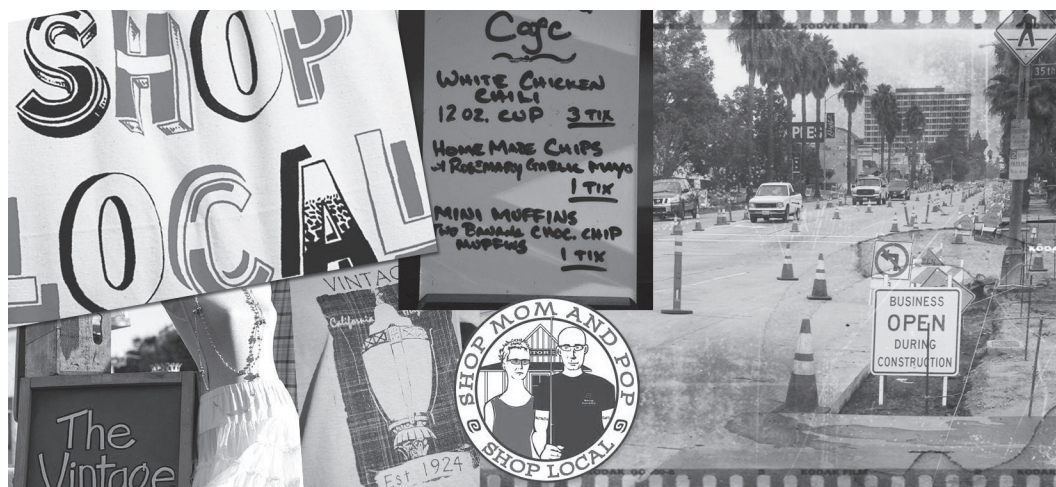 SHOP
LOCAL
Cafe
WHITE CHICKEN
CHILI
12 OZ. CUP 3 TIX
HOME MADE CHIPS
w/ ROSEMARY GARLIC MAYO
1 TIX
MINI MUFFINS
TWO BANANA CHOC. CHIP
MUFFINS
1 TIX
VINTAG
California
Est 1924
The
Vintage
SHOP MOM AND POP
STORE
SHOP LOCAL
KODAK FILM
PIES
35th
BUSINESS
OPEN
DURING
CONSTRUCTION
KODAK
KODAK FILM